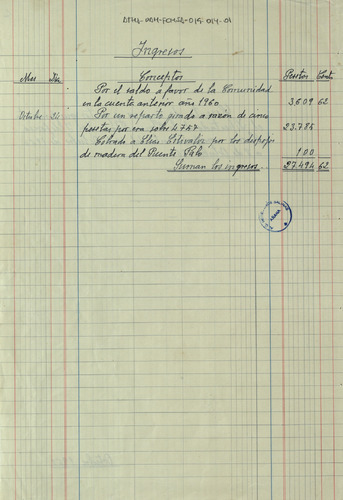 Ingresos
Mes Día Conceptos Pesetas Cents
Por el saldo á favor de la Comunidad
en la cuenta anterior año 1960 3.609 62
Octubre 24 Por un reparto girado a razón de cinco
pesetas por era sobre 4.757 23.785
Cobrado a Elías por los despojos
de madera del Puente Palo 100
Suman los ingresos 27.494 62